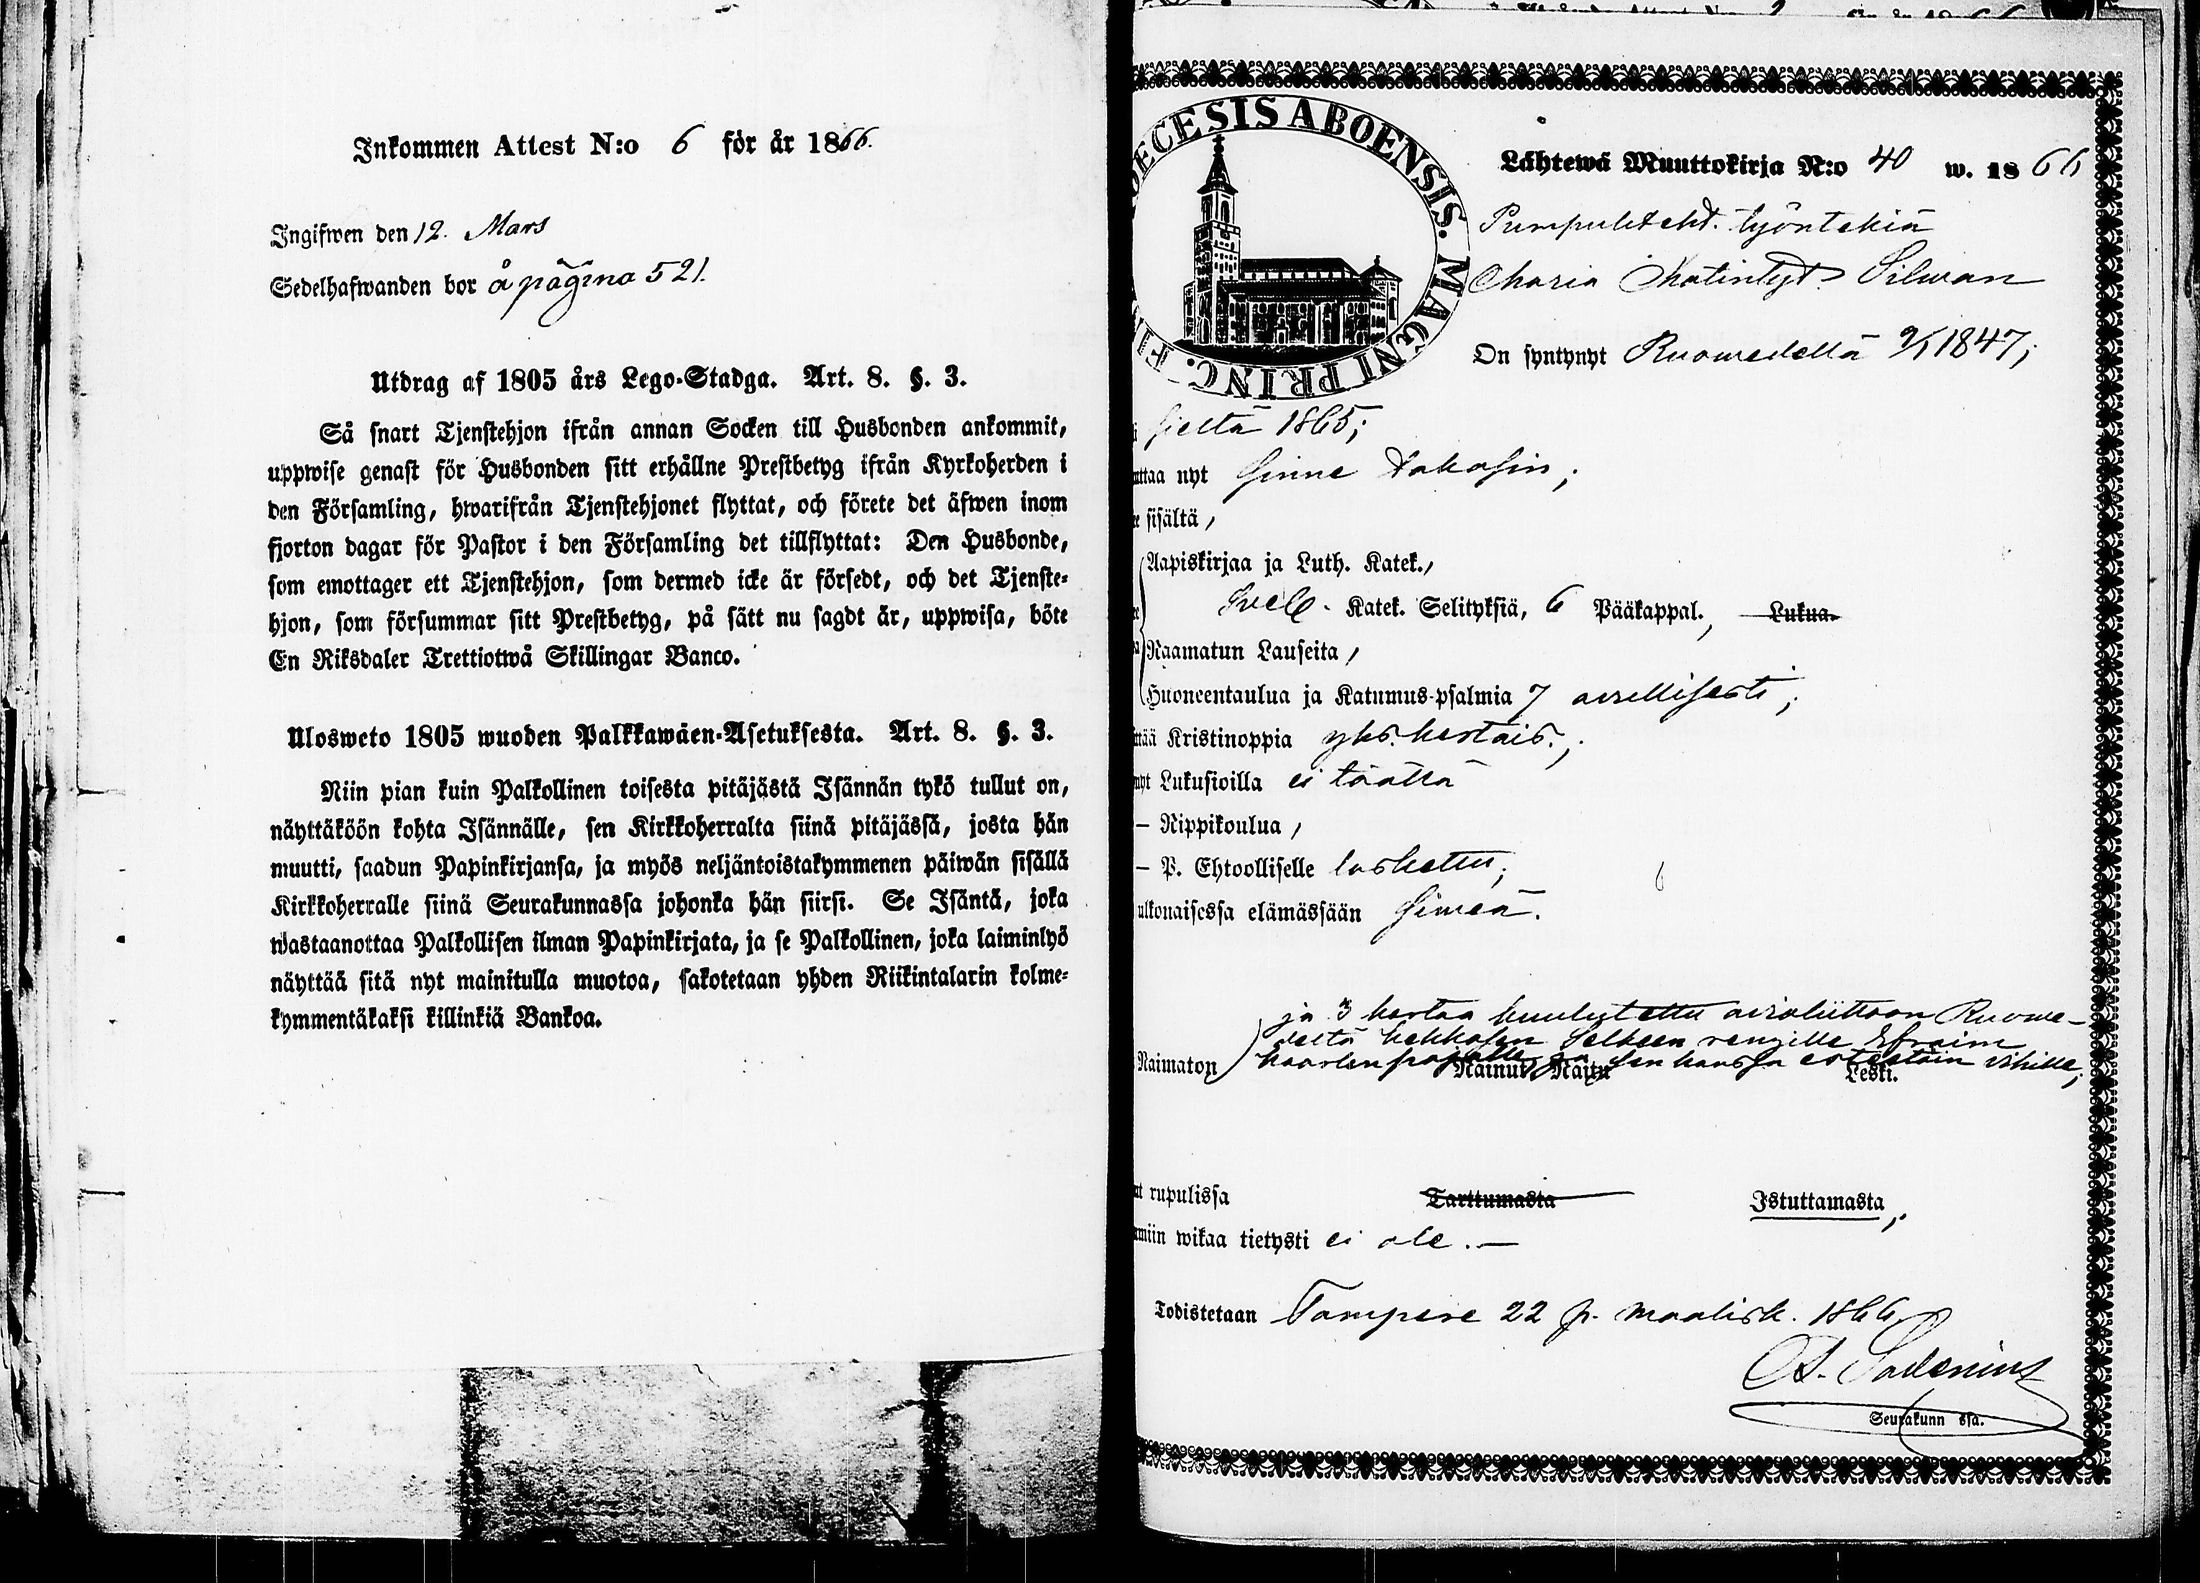 Inkommen Attest N:o 6 för år 1866.
Ingifwen den 12. Mars
Sedelhafwanden bor å pagina 521.
Utdrag af 1805 års Lego-Stadga. Art. 8. §. 3.
Så snart Tjenstehjon ifrån annan Socken till Husbonden ankommit,
uppwise genast för Husbonden sitt erhållne Prestbetyg ifrån Kyrkoherden i
den Församling, hwarifrån Tjenstehjonet flyttat, och förete det äfwen inom
fjorton dagar för Pastor i den Församling det tillflyttat: Den Husbonde,
som emottager ett Tjenstehjon, som dermed icke är försedt, och det Tjenste-
hjon, som försummar sitt Prestbetyg, på sätt nu sagdt är, uppwisa, böte
En Riksdaler Trettiotwå Skillingar Banco.
Ulosweto 1805 wuoden Palkkawäen-Asetuksesta. Art. 8. §. 3.
Niin pian kuin Palkollinen toisesta pitäjästä Isännän tykö tullut on,
näyttäköön kohta Isännälle, sen Kirkkoherralta siinä pitäjässä, josta hän
muutti, saadun Papinkirjansa, ja myös neljäntoistakymmenen päiwän sisällä
Kirkkoherralle siinä Seurakunnassa johonka hän siirsi. Se Isäntä, joka
wastaanottaa Palkollisen ilman Papinkirjata, ja se Palkollinen, joka laiminlyö
näyttää sitä nyt mainitulla muotoa, sakotetaan yhden Riikintalarin kolme-
kymmentäkaksi killinkiä Bankoa.
DECESIS ABOENSIS. MAGNI PRINC. FI
Lähtewä Muuttokirja N:o 40 w. 1866
Pumpulitehd. työntekiä
Maria Matintyt. Silwan
On syntynyt Ruowedellä 9/1 1847;
sieltä 1865;
uttaa nyt sinne takasin;
e sisältä,
Aapiskirjaa ja Luth. Katek.,
Sveb. Katek. Selityksiä, 6 Pääkappal., Lukua.
Raamatun Lauseita,
Huoneentaulua ja Katumus-psalmia 7 awullisesti;
ttää Kristinoppia yks.kertais.;
nyt Lukusioilla ei täällä
— Rippikoulua,
— P. Ehtoolliselle laskettu;
ulkonaisessa elämässään siweä.
ja 3 kertaa kuulutettu avioliittoon Ruowe-
deltä Kekkosen Selkeen rengille Efraim
Naimaton Kaarlenpojalle, ja sen kanssa esteetöin vihille;
Nainut, Naitu Leski.
ut rupulissa Tarttumasta Istuttamasta,
miin wikaa tietysti ei ole.—
Todistetaan Tampere 22 p. maalisk. 1866
A. Sadenius
Seurakunn ssa.